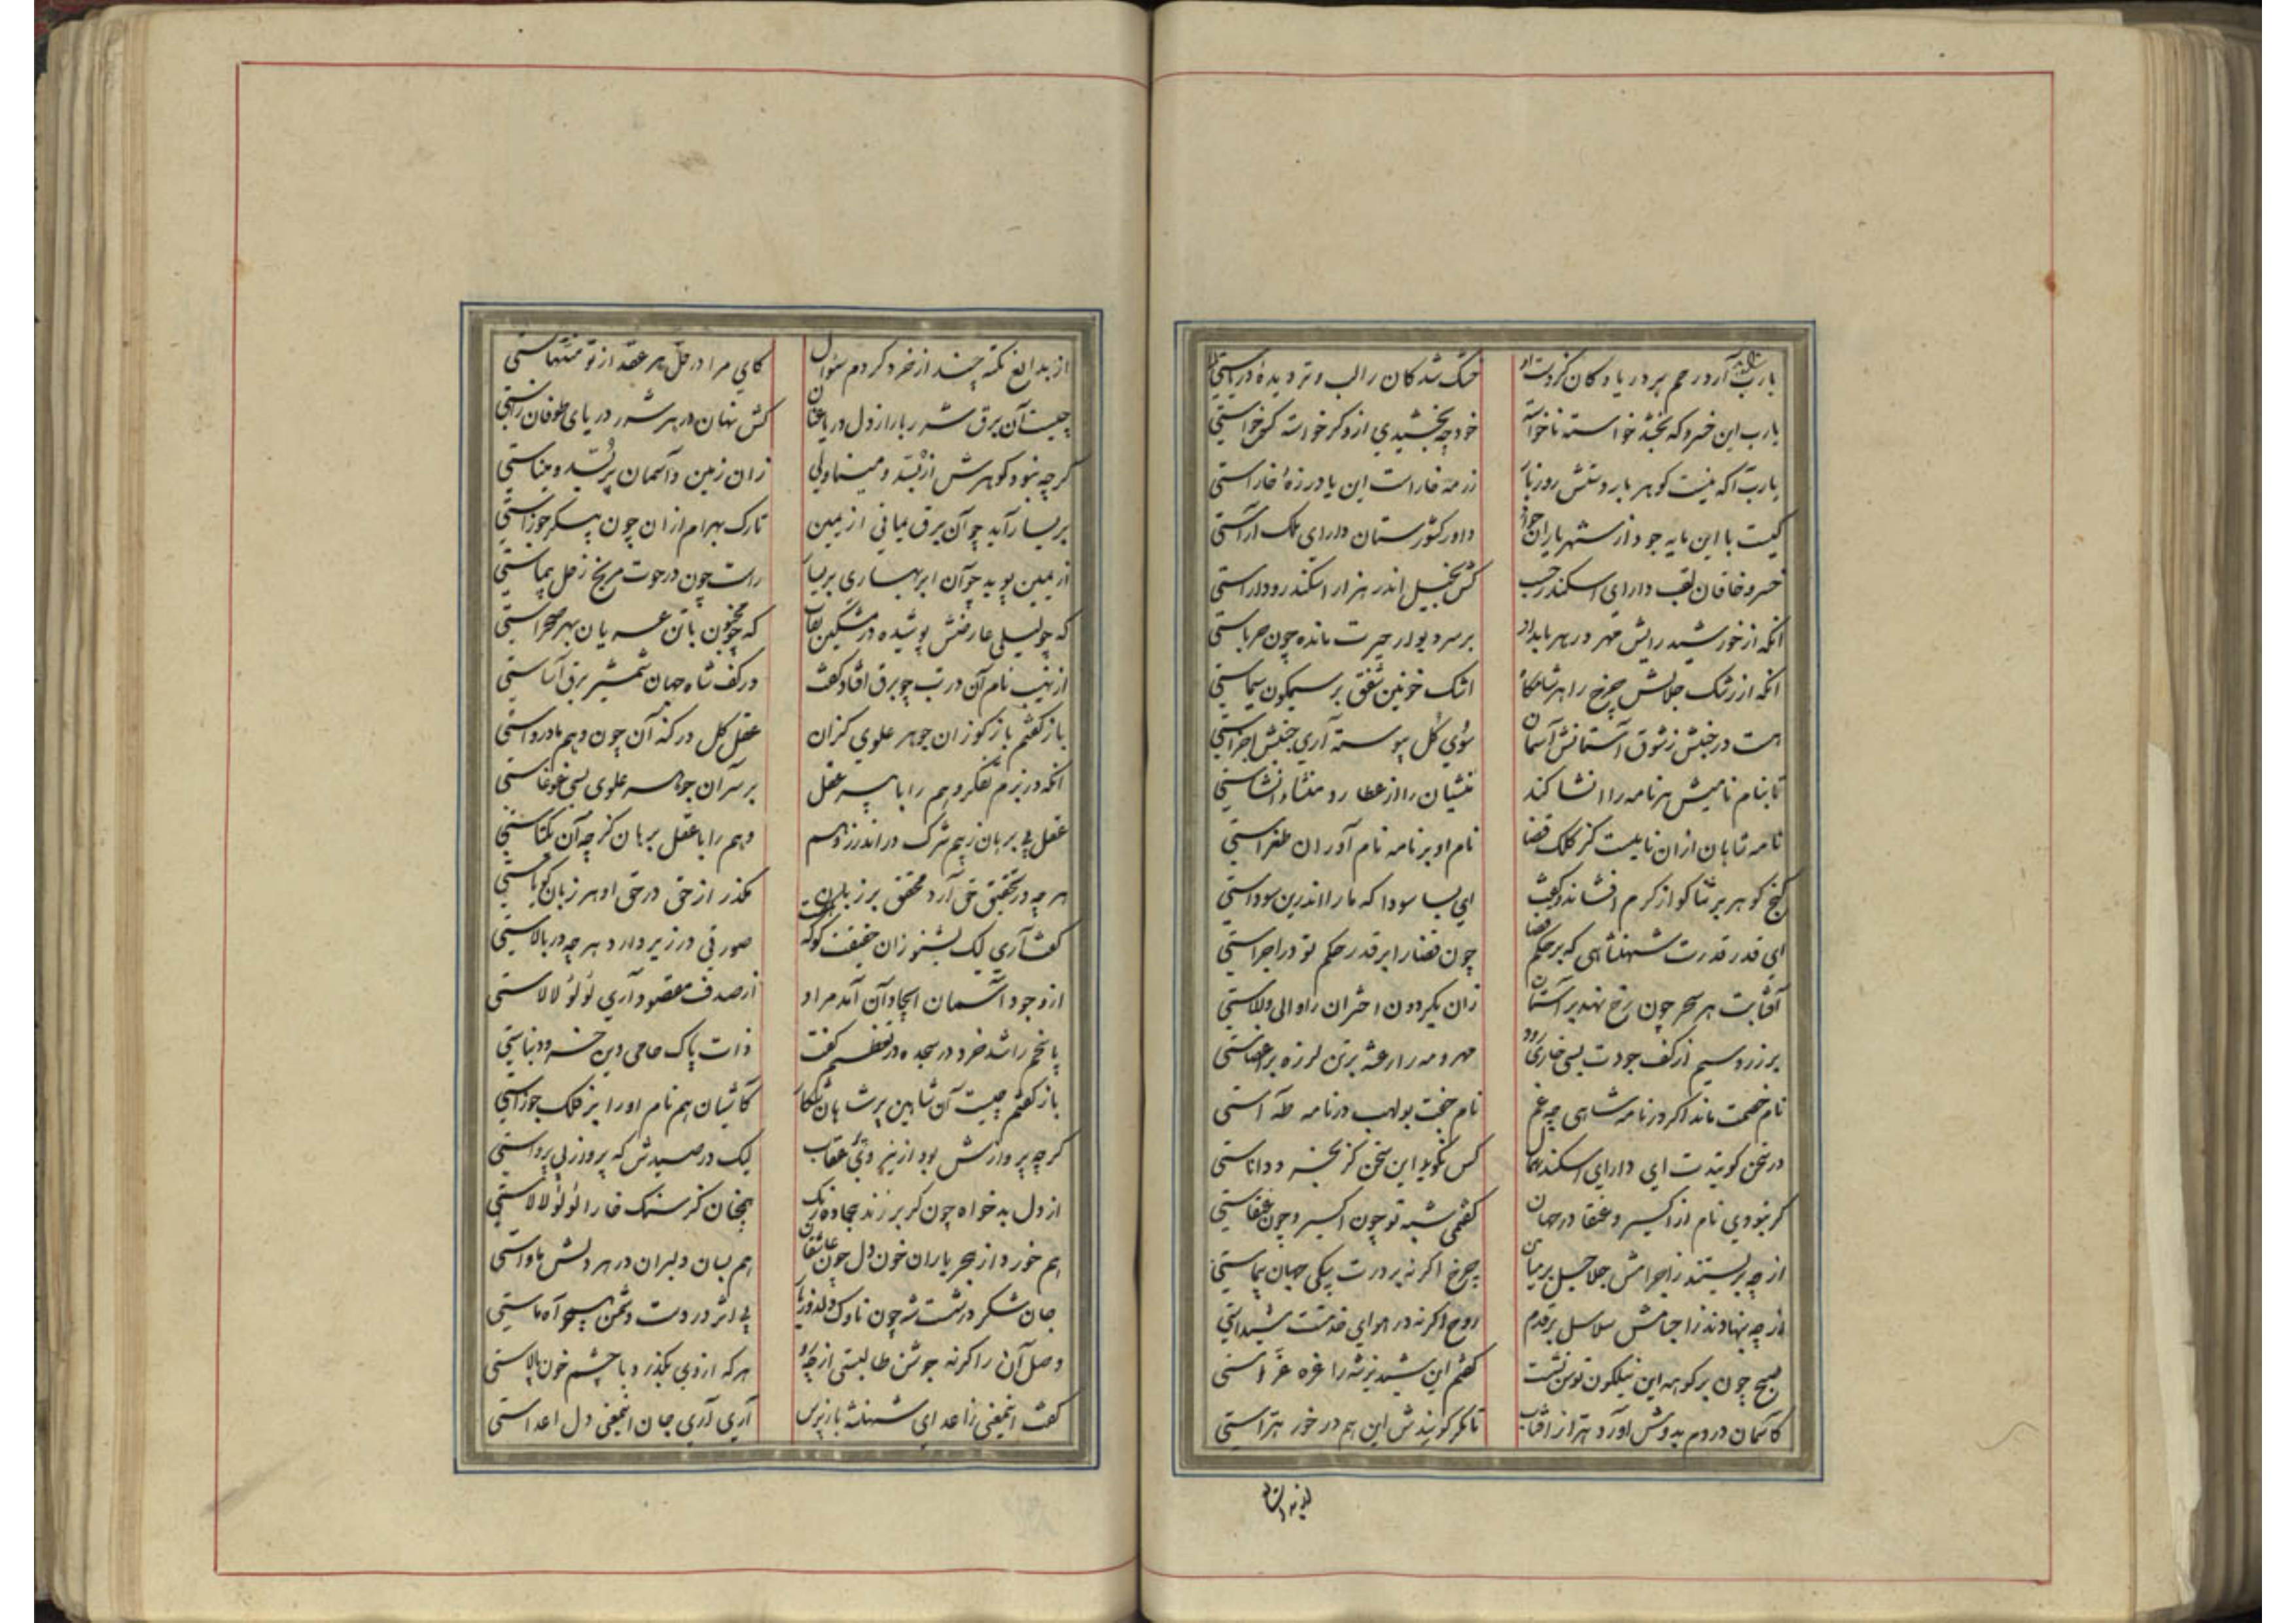 یارب آرد رحم بر دریا و کان کز دست او خشک شد کان را لب و تر دیدهٔ دریاستی
یارب این خسرو که بخشد خواسته ناخواسته خود چه بخشیدی ازو گر خواسته کس خواستی
یارب آگه نیست گوهربار دستش روز بار زر مه خاراست این یا در زهٔ خاراستی
کیست با این مایه جود از شهریاران جز داور کشورستان دارای ملک آراستی
خسرو خاقان لقب دارای اسکندر حسب کش بخیل اندر هزار اسکندر و داراستی
آنکه از خورشید رایش مهر در هر بامداد بر سر دیوار حیرت مانده چون حرباستی
آنکه از رشک جلالش چرخ را هر شامگاه اشک خونین شفق بر سیمگون سیماستی
هست در جنبش ز شوق آستانش آسمان سوی کل پیوسته آری جنبش اجزاستی
تا بنام نامیش هر نامه را انشا کند منشیان را از عطارد منشاء انشاستی
نامه شاهان از آن نابیست کز کلک قضا نام او بر نامه نام آوران طغراستی
گنج گوهر بر ثناگو از کرم افشاند و گفت ای بسا سودا که ما را اندرین سوداستی
ای قدر قدرت شهنشاهی که بر حکم قضا چون قضا را بر قدر حکم تو در اجراستی
آفتابت هر سحر چون رخ نهد بر آستان زان بگردون اختران را والی والاستی
بر زر و سیم از کف جودت بسی خواری رود مهر و مه را رعشه بر تن لرزه بر اعضاستی
نام خصمت ماند اگر در نامه شاهی چه غم نام جفت بولهب در نامه طه آستی
در سخن گویندت ای دارای اسکندر همال کس نگوید این سخن گر بخرد و داناستی
گر نبودی نام از اکسیر و عنقا در جهان گفتمی شبه تو چون اکسیر و چون عنقاستی
از چه بربستند ز اجرامش جلاجل بر میان چرخ اگر نه بر درت پیکی جهان پیماستی
از چه بنهادند ز اجسامش سلاسل بر قدم روح اگر نه در هوای خدمتت شیداستی
صبح چون بر کوهه این نیلگون توسن نشست گفتم این شبدیز شه را غره غراستی
کآسمان در دم بدوش آورد هرا ز آفتاب تا مگر گویندش این هم در خور هراستی
از بدایع نکته چند از خرد کردم سؤال کای مرا در حل هر عقد از تو منتهاستی
چیست آن برق شرربار از دل دریا عنان کش نهان در هر شرر دریای طوفان زاستی
گر چه نبود گوهرش از بسد و مینا ولی زان زمین و آسمان پر بسد و میناستی
بر یسار آید چو آن برق یمانی از یمین تارک بهرام از آن چون پیکر جوزاستی
از یمین پوید چو آن ابر بهاری بر یسار راست چون در حوت مریخ زحل پیماستی
که چو لیلی عارضش پوشیده در مشکین نقاب که چو مجنون با تن عریان بهر صحراستی
از نهیب نام آن در تب چو برق افتاد و گفت در کف شاه جهان شمشیر برق آساستی
باز گفتم باز گو زان جوهر علوی کزان عقل کل در کنه آن چون وهم ما درواستی
آنکه در بزم تفکر وهم را با پیر عقل بر سر آن جوهر علوی بسی غوغاستی
عقل بی برهان ز بیم شرک در اندرز وهم وهم را با عقل برهان گر چه آن یکتاستی
هر چه در تحقیق حق آرد محقق بر زبان بگذر از حق در حق او هر زبان گویاستی
گفت آری لیک بشنو زان حقیقت گو که گفت صورتی در زیر دارد هر چه در بالاستی
از وجود آسمان ایجاد آن آمد مراد از صدف مقصود آری لؤلؤ لالاستی
پاسخم را شد خرد در سجده در تعظیم گفت ذات پاک حامی دین خسرو دنیاستی
باز گفتم چیست آن شاهین پرشاهان شکار کآشیان هم نام او را بر فلک جوزاستی
گر چه پروازش بود از نیروی عقاب لیک در صیدش که پرواز بی پرواستی
از دل بدخواه چون گر بر زند بیجاده رنگ همچنان کز سنگ خارا لؤلؤ لالاستی
هم خورد از هجر یاران خون دل چون عاشقان هم بسان دلبران در هر دلش ماواستی
جان شکر در شست شه چون ناوک دلدوز یار بی اثر در دست دشمن همچو آه ماستی
وصل آن را گر نه جوشن طالبستی از چه رو هر که از وی بگذرد با چشم خون پالاستی
گفت اینمعنی ز اعدای شهنشه بازپرس آری آری جان اینمعنی دل اعداستی